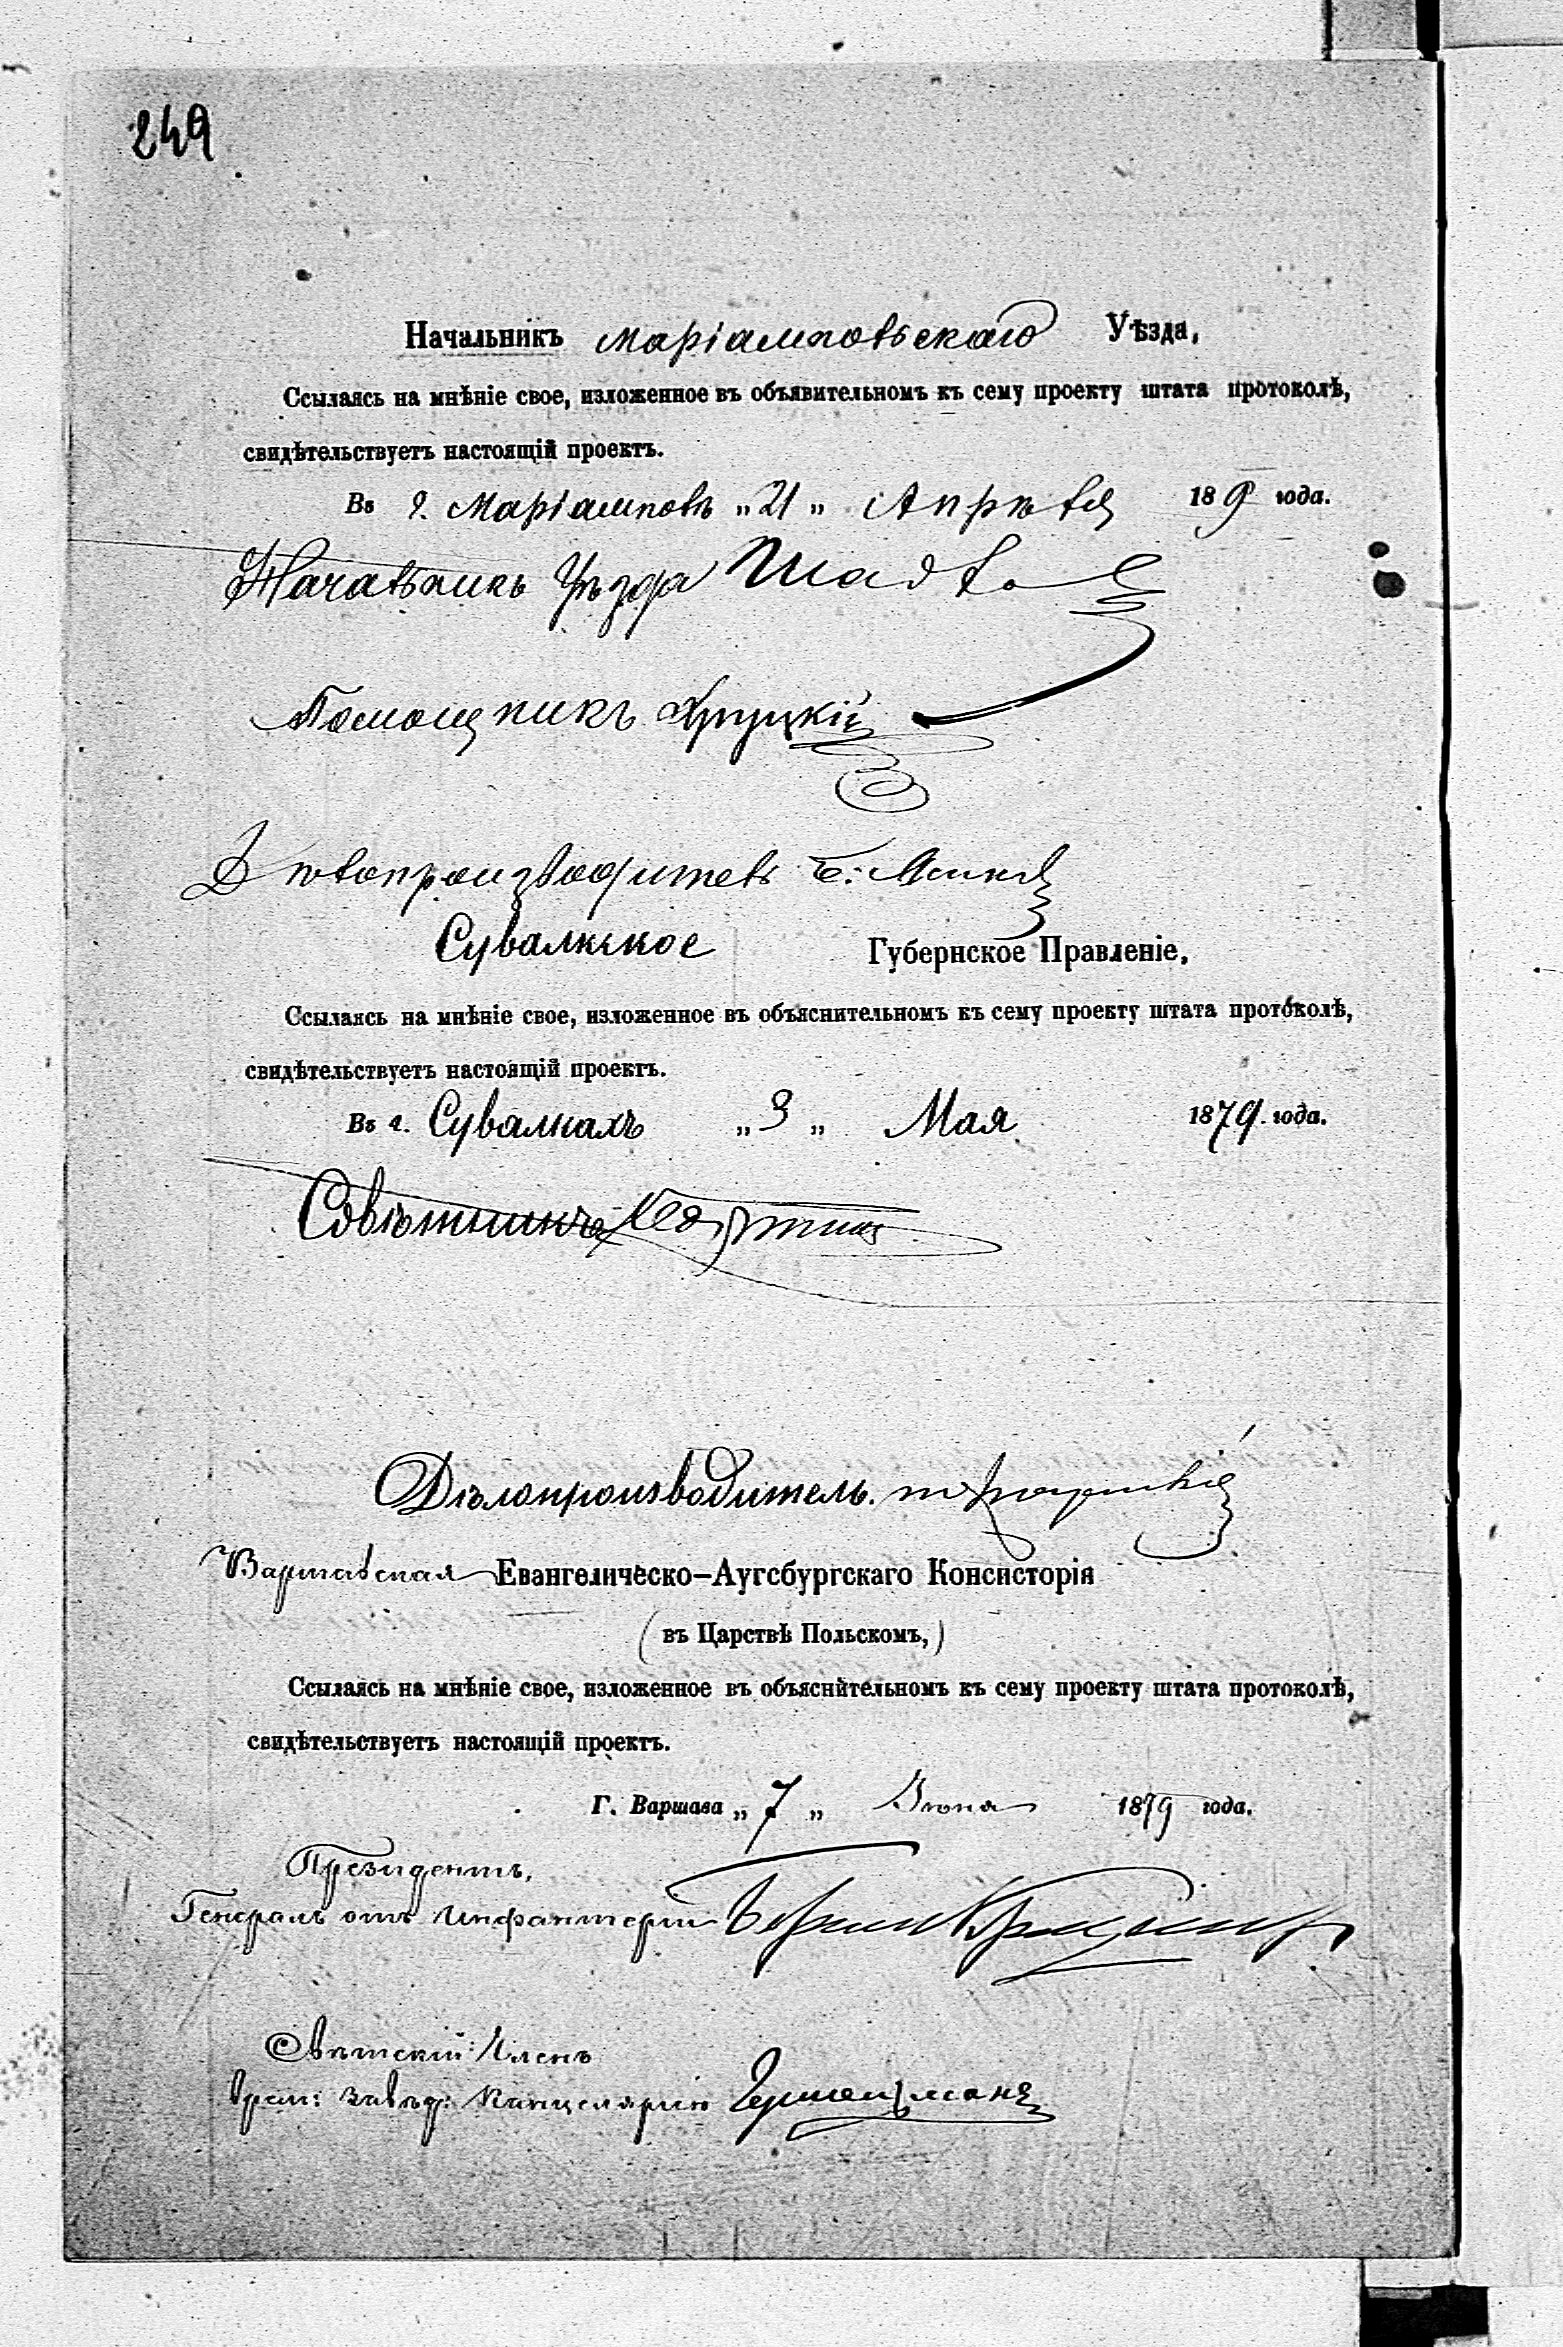 249
Начальникъ Маріампольскаго Уѣзда,
Ссылаясь на мнѣніе свое, изложенное въ объявительномъ къ сему проекту штата протоколѣ,
свидѣтельствуетъ настоящій проектъ.
Въ г. Маріамполѣ „21„ Апрѣля 189 года.
Начальникъ Уѣзда
Помощникъ Хруцкій
Дѣлопроизводитель
Сувалкское Губернское Правленіе,
Ссылаясь на мнѣніе свое, изложенное въ объяснительномъ къ сему проекту штата протоколѣ,
свидѣтельствуетъ настоящій проектъ.
Въ г. Сувалкахъ „3„ Мая 1879. года.
Совѣтникъ
Дѣлопроизводитель.
Варшавская Евангелическо-Аугсбургскаго Консисторія
(въ Царствѣ Польскомъ,)
Ссылаясь на мнѣніе свое, изложенное въ объяснительномъ къ сему проекту штата протоколѣ,
свидѣтельствуетъ настоящій проектъ.
Г. Варшава „7„ Іюня 1879 года.
Президентъ,
Генералъ отъ Инфантеріи
Свѣтскій Членъ
Врем: Завѣд: Канцеляріею